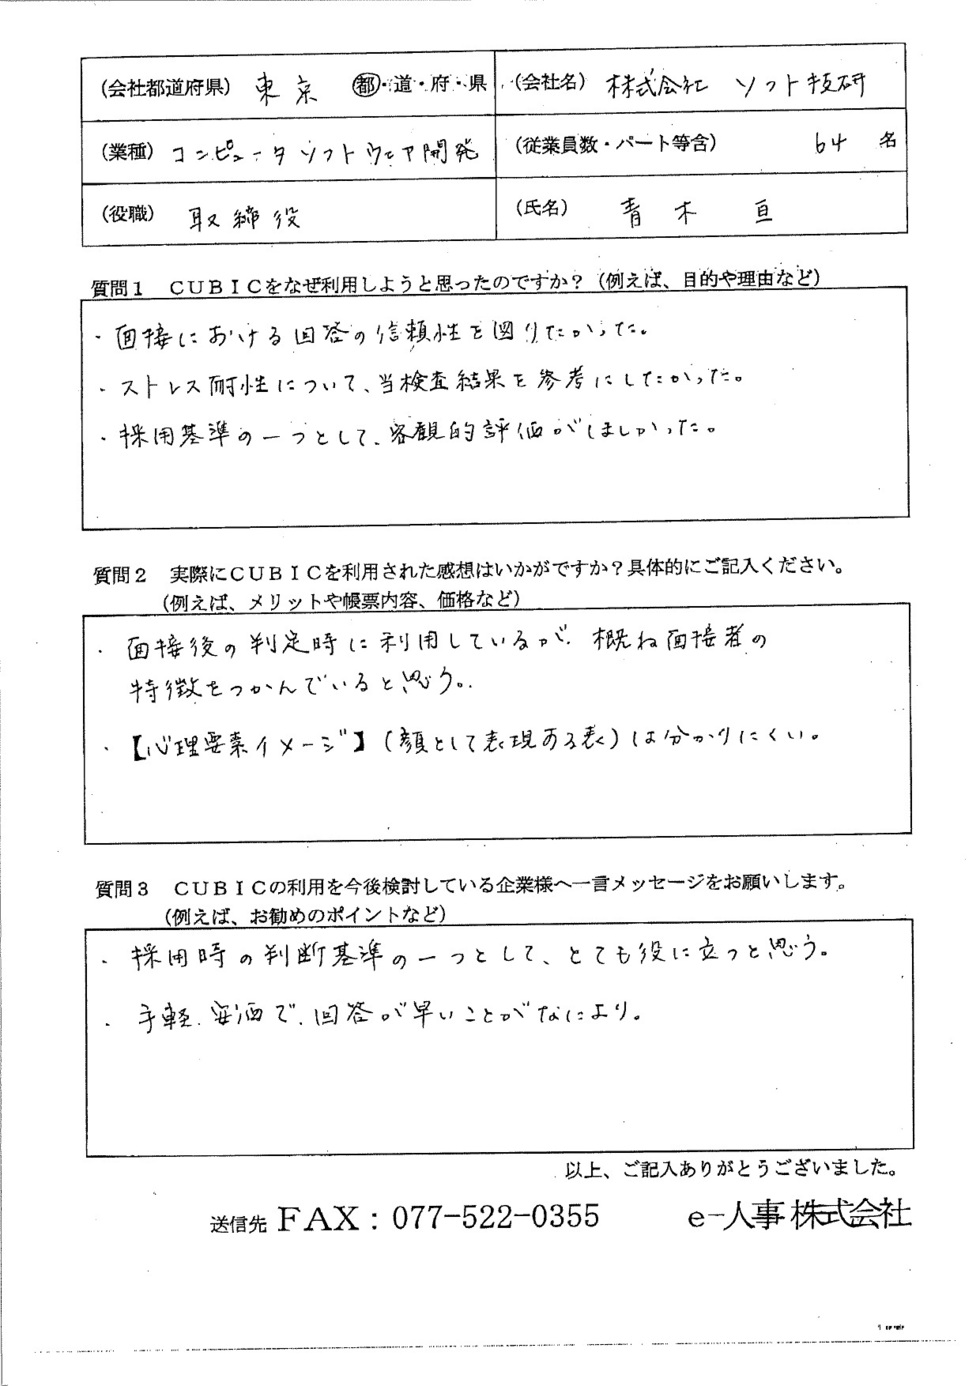 (会社都道府県) 東京 都・道・府・県 (会社名) 株式会社 ソフト技研
(業種) コンピュータソフトウェア開発 (従業員数・パート等含) 64 名
(役職) 取締役 (氏名) 青木 亘
質問1 CUBICをなぜ利用しようと思ったのですか？（例えば、目的や理由など）
・面接における回答の信頼性を図りたかった。
・ストレス耐性について、当検査結果を参考にしたかった。
・採用基準の一つとして、客観的評価がほしかった。
質問2 実際にCUBICを利用された感想はいかがですか？具体的にご記入ください。
（例えば、メリットや帳票内容、価格など）
・面接後の判定時に利用しているが、概ね面接者の
特徴をつかんでいると思う。
・【心理要素イメージ】（顔として表現ある表）は分かりにくい。
質問3 CUBICの利用を今後検討している企業様へ一言メッセージをお願いします。
（例えば、お勧めのポイントなど）
・採用時の判断基準の一つとして、とても役に立つと思う。
・手軽、安価で、回答が早いことがなにより。
以上、ご記入ありがとうございました。
送信先 FAX：077-522-0355 e-人事株式会社